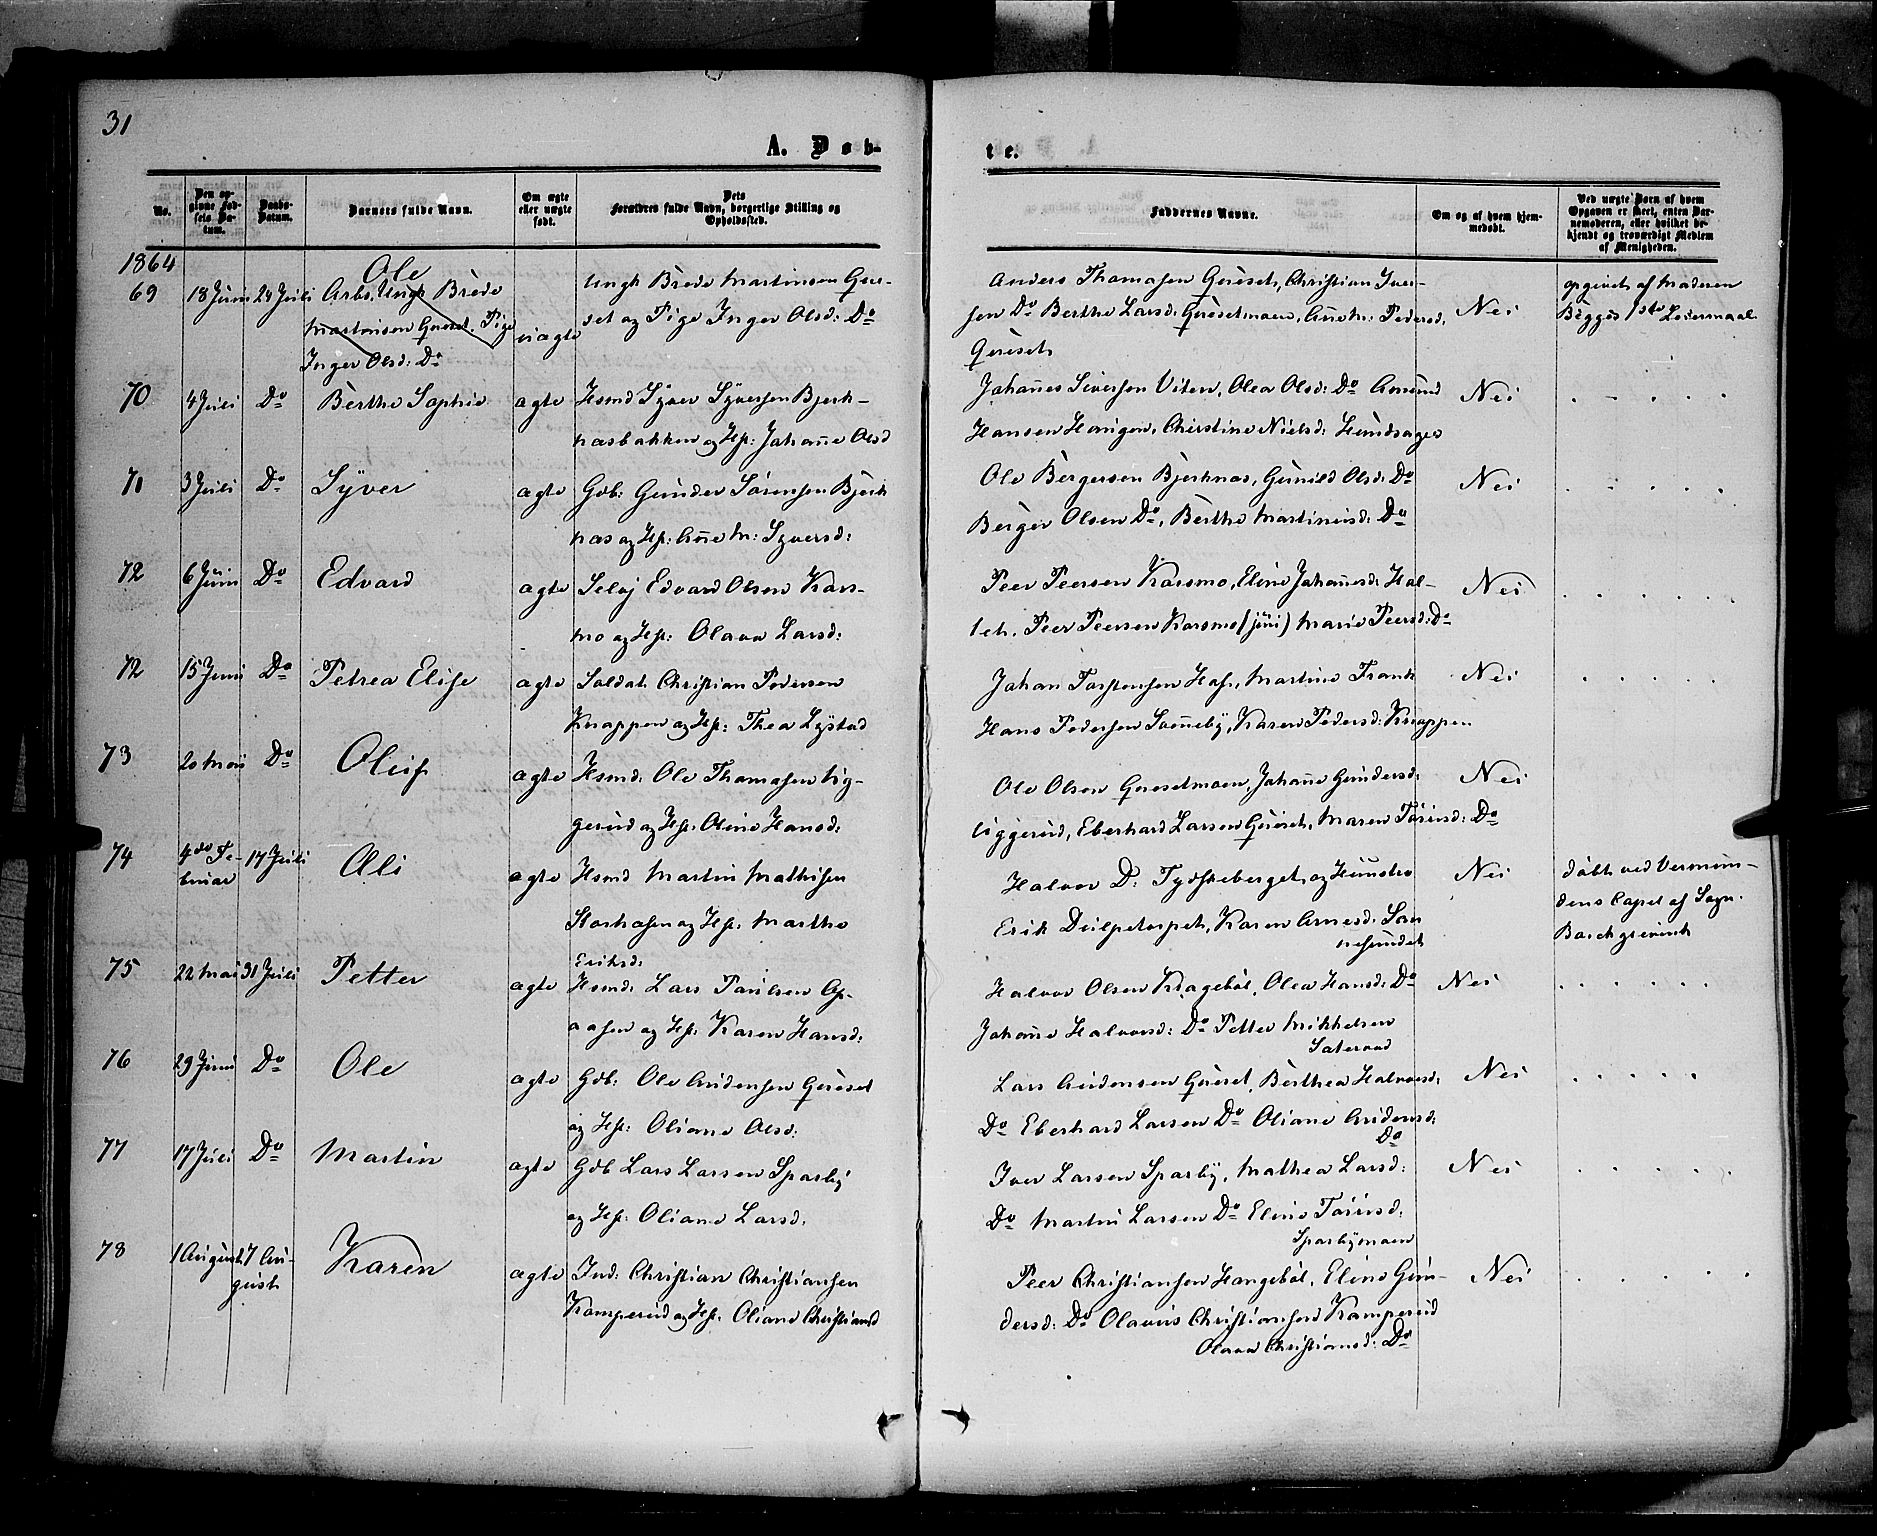 31
A. Døb-
te.
No.
Den op-
givne Fød-
sels Da-
tum.
Daabs-
Datum.
Barnets fulde Navn.
Om ægte
eller uægte
født.
Dets
Forældres fulde Navn, borgerlige Stilling og
Opholdssted.
Faddernes Navne.
Om og af hvem hjem-
medøbt.
Ved uægte Børn af hvem
Opgaven er skeet, enten Bar-
nemoderen, eller hvilket be-
kjendt og troværdigt Medlem
af Menigheden.
1864
69 18 Juni 24 Juli Ole
Arbs. Ungk Brede
Martinsen Gjeset. Pige
Inger Olsd: Do
uægte
Ungk Brede Martinsen Gjes-
set og Pige Inger Olsd: Do
Anders Thomasen Gjeset, Christian Iver-
sen Do Berthe Larsd: Gjesetmoen, Anne M: Pedersd,
Gjeset
Nei
opgivet af Moderen
Begges 1ste Leiermaal
70 4 Juli Do Berthe Sophie ægte Hsmd Syver Syversen Bjerk-
næsbakken og Hst: Johanne Olsd
Johannes Siversen Viten, Olea Olsd: Do Amund
Hansen Haugen, Christine Nielsd:
Nei
71 3 Juli Do Syver ægte Gdb: Gunder Sørensen Bjerk
næs og Hst: Anne M: Syversd:
Ole Bergersen Bjerknæs, Gunild Olsd: Do
Berger Olsen Do, Berthe Martinusd: Do
Nei
72 6 Juni Do Edvard ægte Selvj Edvard Olsen Kars-
mo og Hst: Olava Larsd:
Peer Peersen Karsmo, Eline Johannesd: Hol-
teh. Peer Peersen Karsmo (jun) Marie Peersd: Do
Nei
72 15 Juni Do Petrea Elise ægte Soldat Christian Pedersen
Knappen og Hst: Thea Lystad
Johan Torstensen Hof, Martine Frank
Hans Pedersen Svenneby, Karen Pedersd: Knappen
Nei
73 20 Mai Do Oluf ægte Hsmd: Ole Thomasen Ug-
gerud og Hst. Oline Hansd:
Ole Olsen Gjesetmoen, Johanne Gundersd:
Uggerud, Eberhard Larsen Gjeset, Maren Tørisd: Do
Nei
74 4de Fe-
bruar
17 Juli Oli ægte Hsmd Martin Mathisen
Storhasen og Hst: Marthe
Eriksd:
Halvor D: Tydskeberget og Hustro
Erik Dulpetorpet, Karen Arnesd:
Nei
døbt ved Vermun-
dens Capel af Sogn.
Borchgrevink
75 22 Mai 31 Juli Petter ægte Hsmd: Lars Paulsen Op-
aasen og Hst: Karen Hansd:
Halvor Olsen Kragebøl, Olea Hansd: Do
Johanne Halvorsd: Do Petter Mikkelsen
Nei
76 29 Juni Do Ole ægte Gdb: Ole Audensen Gjeset
og Hst: Oliane Olsd:
Lars Audensen Gjeset, Berthea Halvorsd:
Do Eberhard Larsen Do Oliane Audensd:
Do
Nei
77 17 Juli Do Martin ægte Gdb Lars Larsen Sparby
og Hst: Oliane Larsd.
Iver Larsen Sparby, Mathea Larsd:
Do Martin Larsen Do Eline Tørisd.
Sparbymoen
Nei
78 1 August 7 Au-
gust
Karen ægte Ind: Christian Christiansen
Kamperud og Hst: Oliane Christiansd
Peer Christiansen Haugebøl, Eline Gun-
dersd: Do Olavus Christiansen Kamperud
Olava Christiansd: Do
Nei